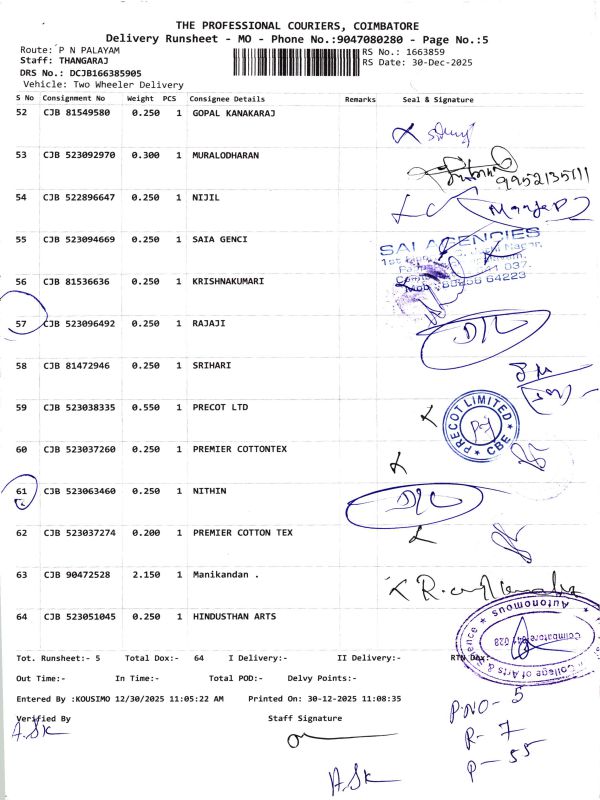 THE PROFESSIONAL COURIERS, COIMBATORE
Delivery Runsheet - MO - Phone No.:9047080280 - Page No.:5
Route: P N PALAYAM
RS No.: 1663859
Staff: THANGARAJ
RS Date: 30-Dec-2025
DRS No.: DCJB166385905
Vehicle: Two Wheeler Delivery
S No Consignment No Weight PCS Consignee Details Remarks Seal & Signature
52 CJB 81549580 0.250 1 GOPAL KANAKARAJ
53 CJB 523092970 0.300 1 MURALODHARAN
9952135111
54 CJB 522896647 0.250 1 NIJIL
55 CJB 523094669 0.250 1 SAIA GENCI
SAI AGENCIES
56 CJB 81536636 0.250 1 KRISHNAKUMARI
64223
57 CJB 523096492 0.250 1 RAJAJI
D/L
58 CJB 81472946 0.250 1 SRIHARI
59 CJB 523038335 0.550 1 PRECOT LTD
PRECOT LIMITED CBE
60 CJB 523037260 0.250 1 PREMIER COTTONTEX
61 CJB 523063460 0.250 1 NITHIN
D/L
62 CJB 523037274 0.200 1 PREMIER COTTON TEX
63 CJB 90472528 2.150 1 Manikandan .
64 CJB 523051045 0.250 1 HINDUSTHAN ARTS
College of Arts & Science
Autonomous
Coimbatore 641 028
Tot. Runsheet:- 5 Total Dox:- 64 I Delivery:- II Delivery:- RTN Dox:-
Out Time:- In Time:- Total POD:- Delvy Points:-
Entered By :KOUSIMO 12/30/2025 11:05:22 AM Printed On: 30-12-2025 11:08:35
P.NO- 5
Verified By Staff Signature
A.SK
R- 7
P- 55
A.SK